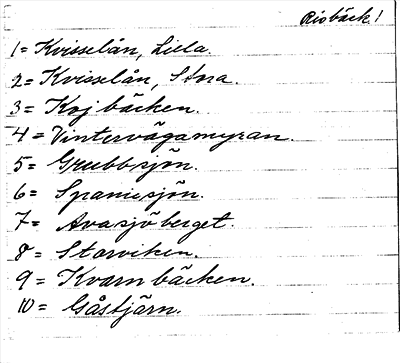 Risbäck 1
1= Kvisselån, Lilla.
2= Kvisselån, Stora.
3= Kojbäcken.
4= Vintervägamyran.
5= Grubbsjön.
6= Spaniesjön.
7= Avasjöberget.
8= Storviken.
9= Kvarnbäcken.
10= Gåstjärn.